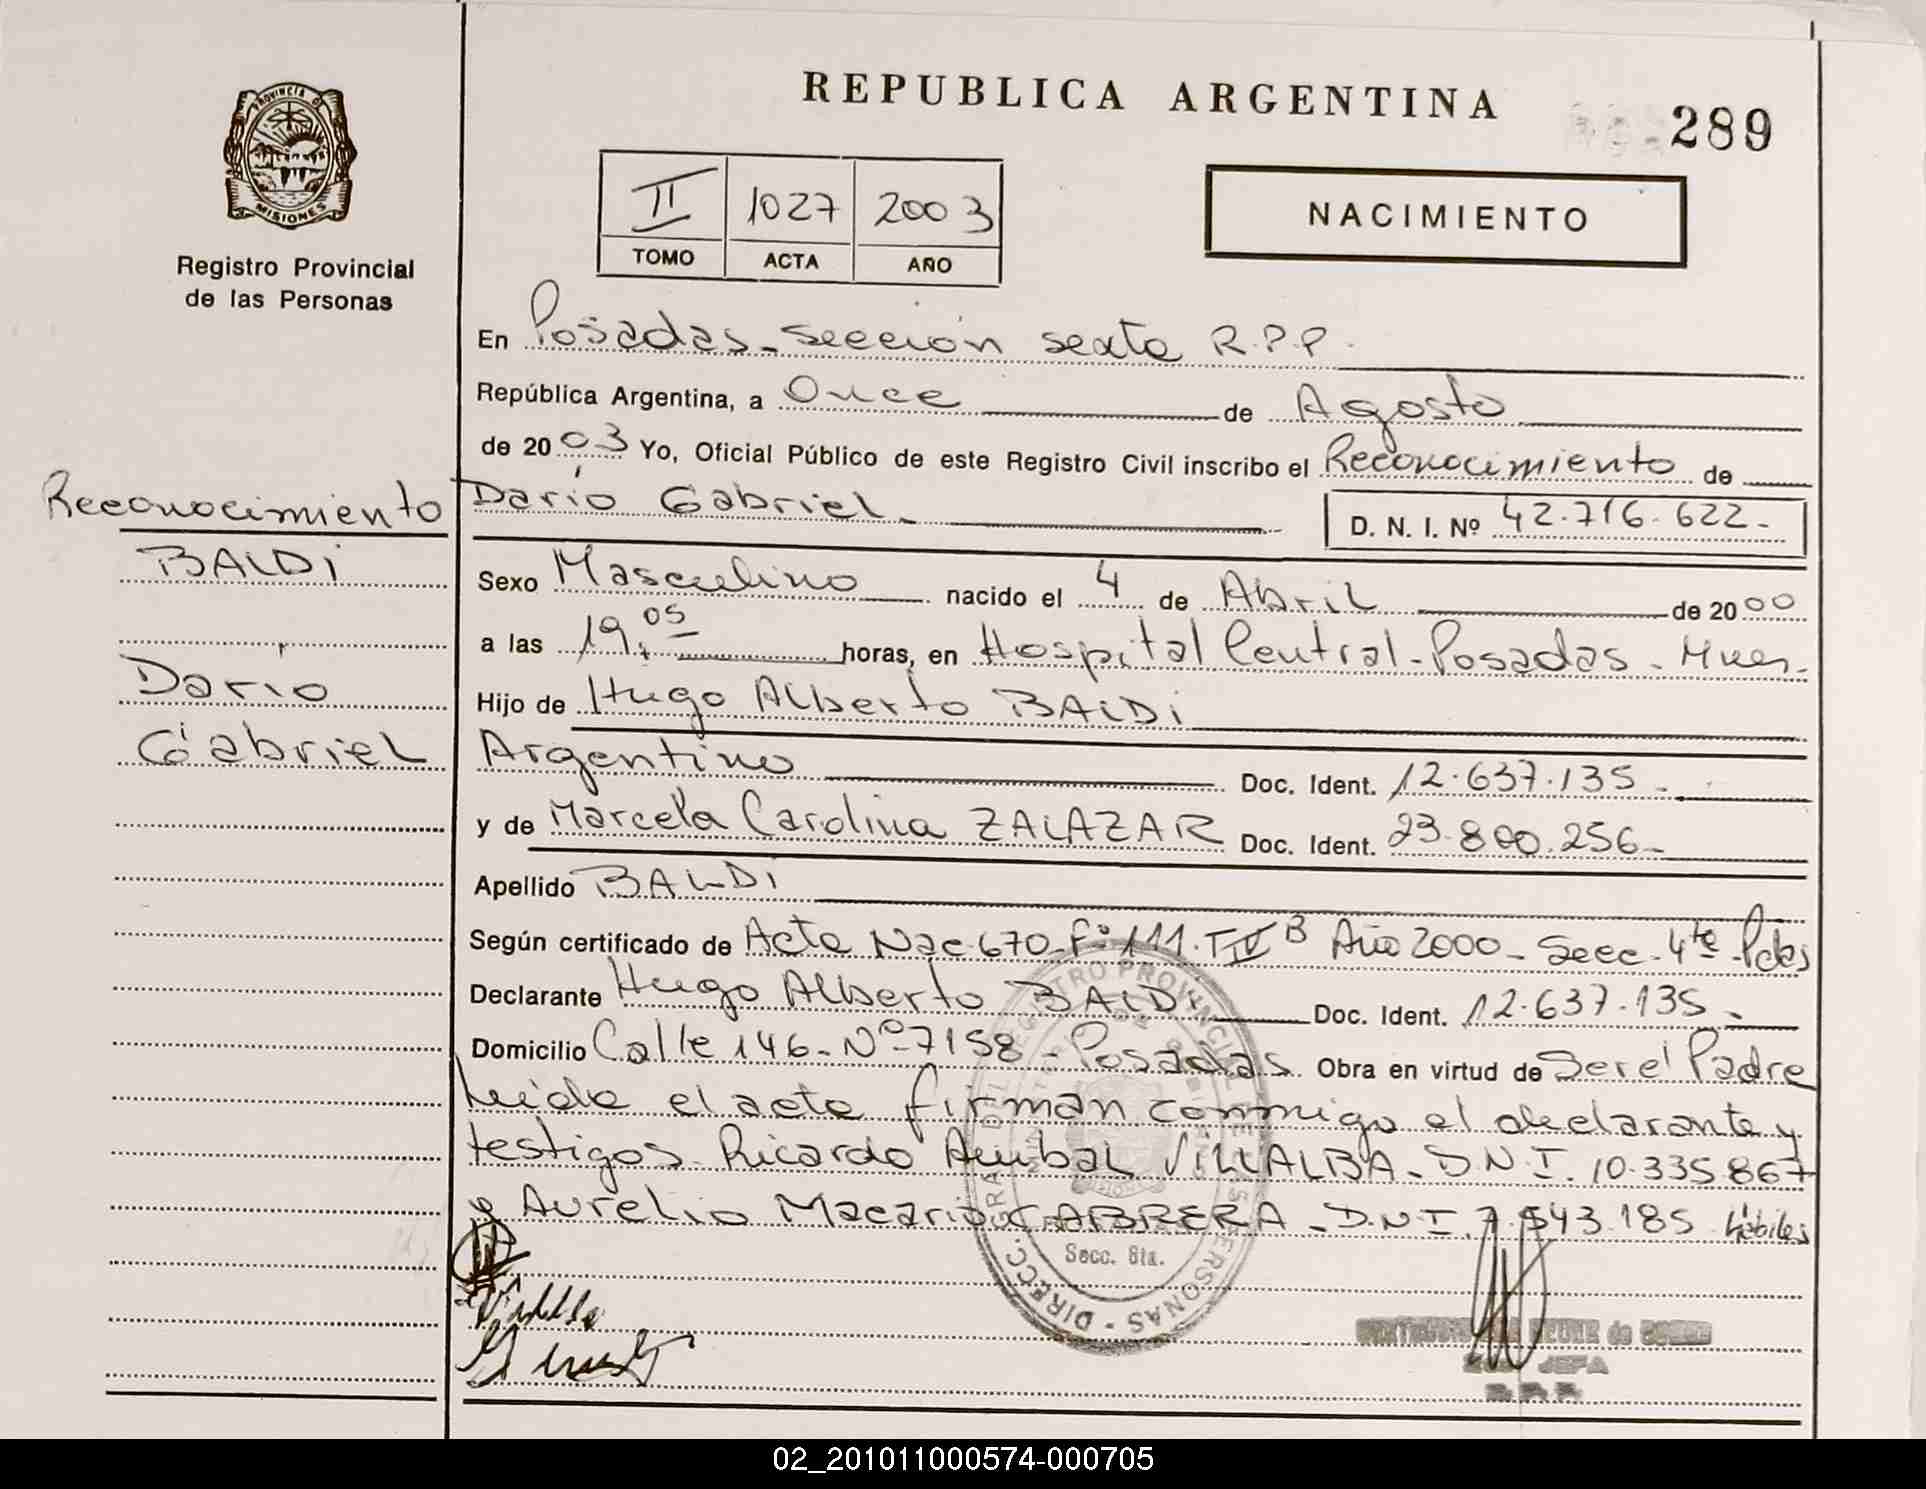 REPUBLICA ARGENTINA
289
PROVINCIA D
MISIONES
Registro Provincial
de las Personas
II 1027 2003
TOMO ACTA AÑO
NACIMIENTO
En Posadas - Sección sexta R.P.P.
República Argentina, a Once de Agosto
de 2003 Yo, Oficial Público de este Registro Civil inscribo el Reconocimiento de
Darío Gabriel.- D. N. I. Nº 42.716.622.-
Reconocimiento
BALDi
Darío
Gabriel
Sexo Masculino nacido el 4 de Abril de 2000
a las 19.05 horas, en Hospital Central - Posadas - Mnes.
Hijo de Hugo Alberto BALDi
Argentino Doc. Ident. 12.637.135.-
y de Marcela Carolina ZALAZAR Doc. Ident. 23.800.256.-
Apellido BALDi
Según certificado de Acta Nac. 670 Fº 111. T IV B Año 2000 - Secc. 4ta Pdas
Declarante Hugo Alberto BALDi Doc. Ident. 12.637.135.-
Domicilio Calle 146 - Nº 7158 - Posadas. Obra en virtud de Ser el Padre
Leída el acta firman conmigo el declarante y
testigos Ricardo Anibal ViLLALBA - D.N.I. 10.335.867
y Aurelio Macario CABRERA - D.N.I. 7.543.185 hábiles
Secc. 6ta.
JEFA
02_201011000574-000705